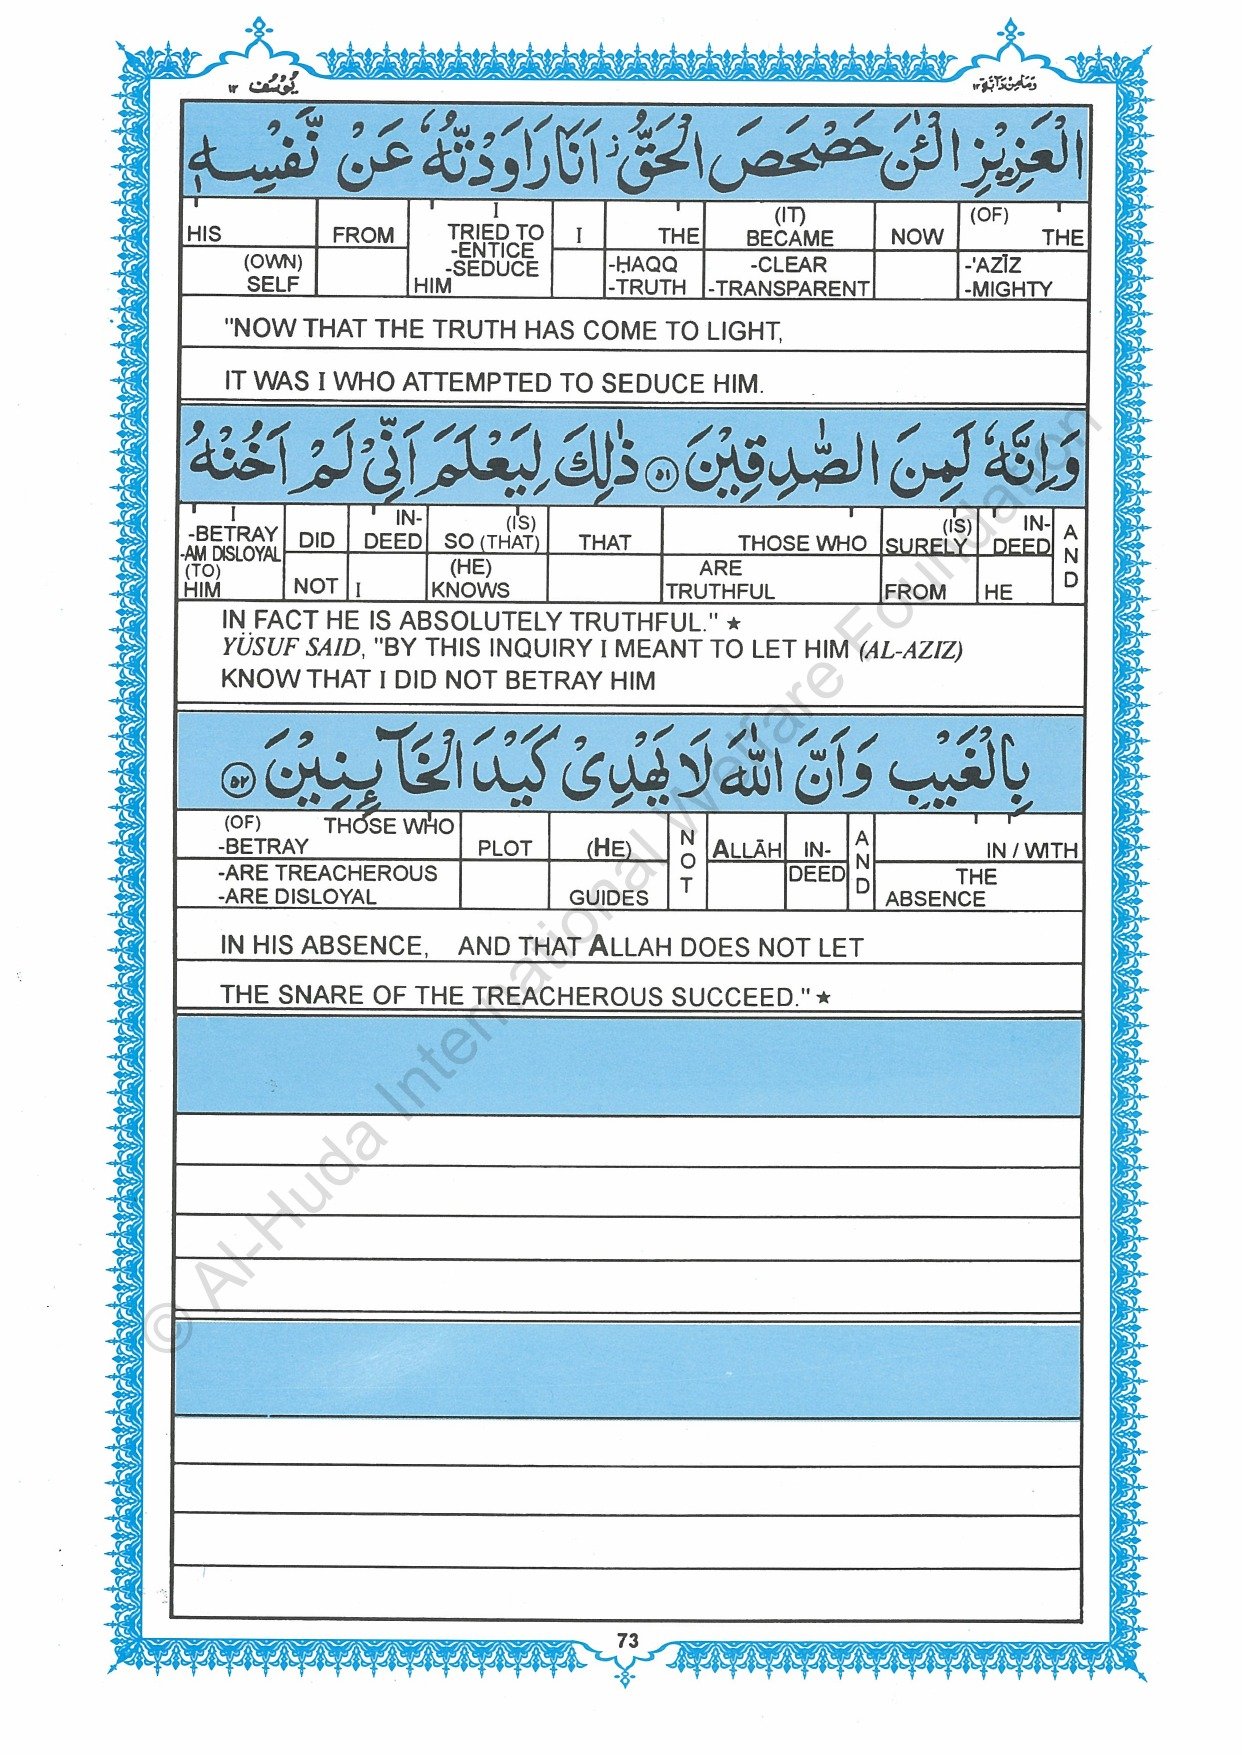 يُوسُف ١٢
وَمَا مِنْ دَآبَّةٍ ١٢
الْعَزِيْزِ الْـٰٔنَ حَصْحَصَ الْحَقُّ ز اَنَا رَاوَدْتُّهٗ عَنْ نَّفْسِهٖ
HIS (OWN) SELF | FROM | I TRIED TO -ENTICE -SEDUCE HIM | I | THE -ḤAQQ -TRUTH | (IT) BECAME -CLEAR -TRANSPARENT | NOW | (OF) THE -'AZĪZ -MIGHTY
"NOW THAT THE TRUTH HAS COME TO LIGHT,
IT WAS I WHO ATTEMPTED TO SEDUCE HIM.
وَاِنَّهٗ لَمِنَ الصّٰدِقِيْنَ ٥١ ذٰلِكَ لِيَعْلَمَ اَنِّيْ لَمْ اَخُنْهُ
I -BETRAY -AM DISLOYAL (TO) HIM | DID NOT | IN-DEED I | (IS) SO (THAT) (HE) KNOWS | THAT | THOSE WHO ARE TRUTHFUL | (IS) SURELY FROM | IN-DEED HE | AND
IN FACT HE IS ABSOLUTELY TRUTHFUL." ★
YÜSUF SAID, "BY THIS INQUIRY I MEANT TO LET HIM (AL-AZIZ)
KNOW THAT I DID NOT BETRAY HIM
بِالْغَيْبِ وَاَنَّ اللّٰهَ لَا يَهْدِيْ كَيْدَ الْخَآئِنِيْنَ ٥٢
(OF) THOSE WHO -BETRAY -ARE TREACHEROUS -ARE DISLOYAL | PLOT | (HE) GUIDES | NOT | ALLĀH | IN-DEED | AND | IN / WITH THE ABSENCE
IN HIS ABSENCE, AND THAT ALLAH DOES NOT LET
THE SNARE OF THE TREACHEROUS SUCCEED." ★
73
© Al-Huda International Welfare Foundation